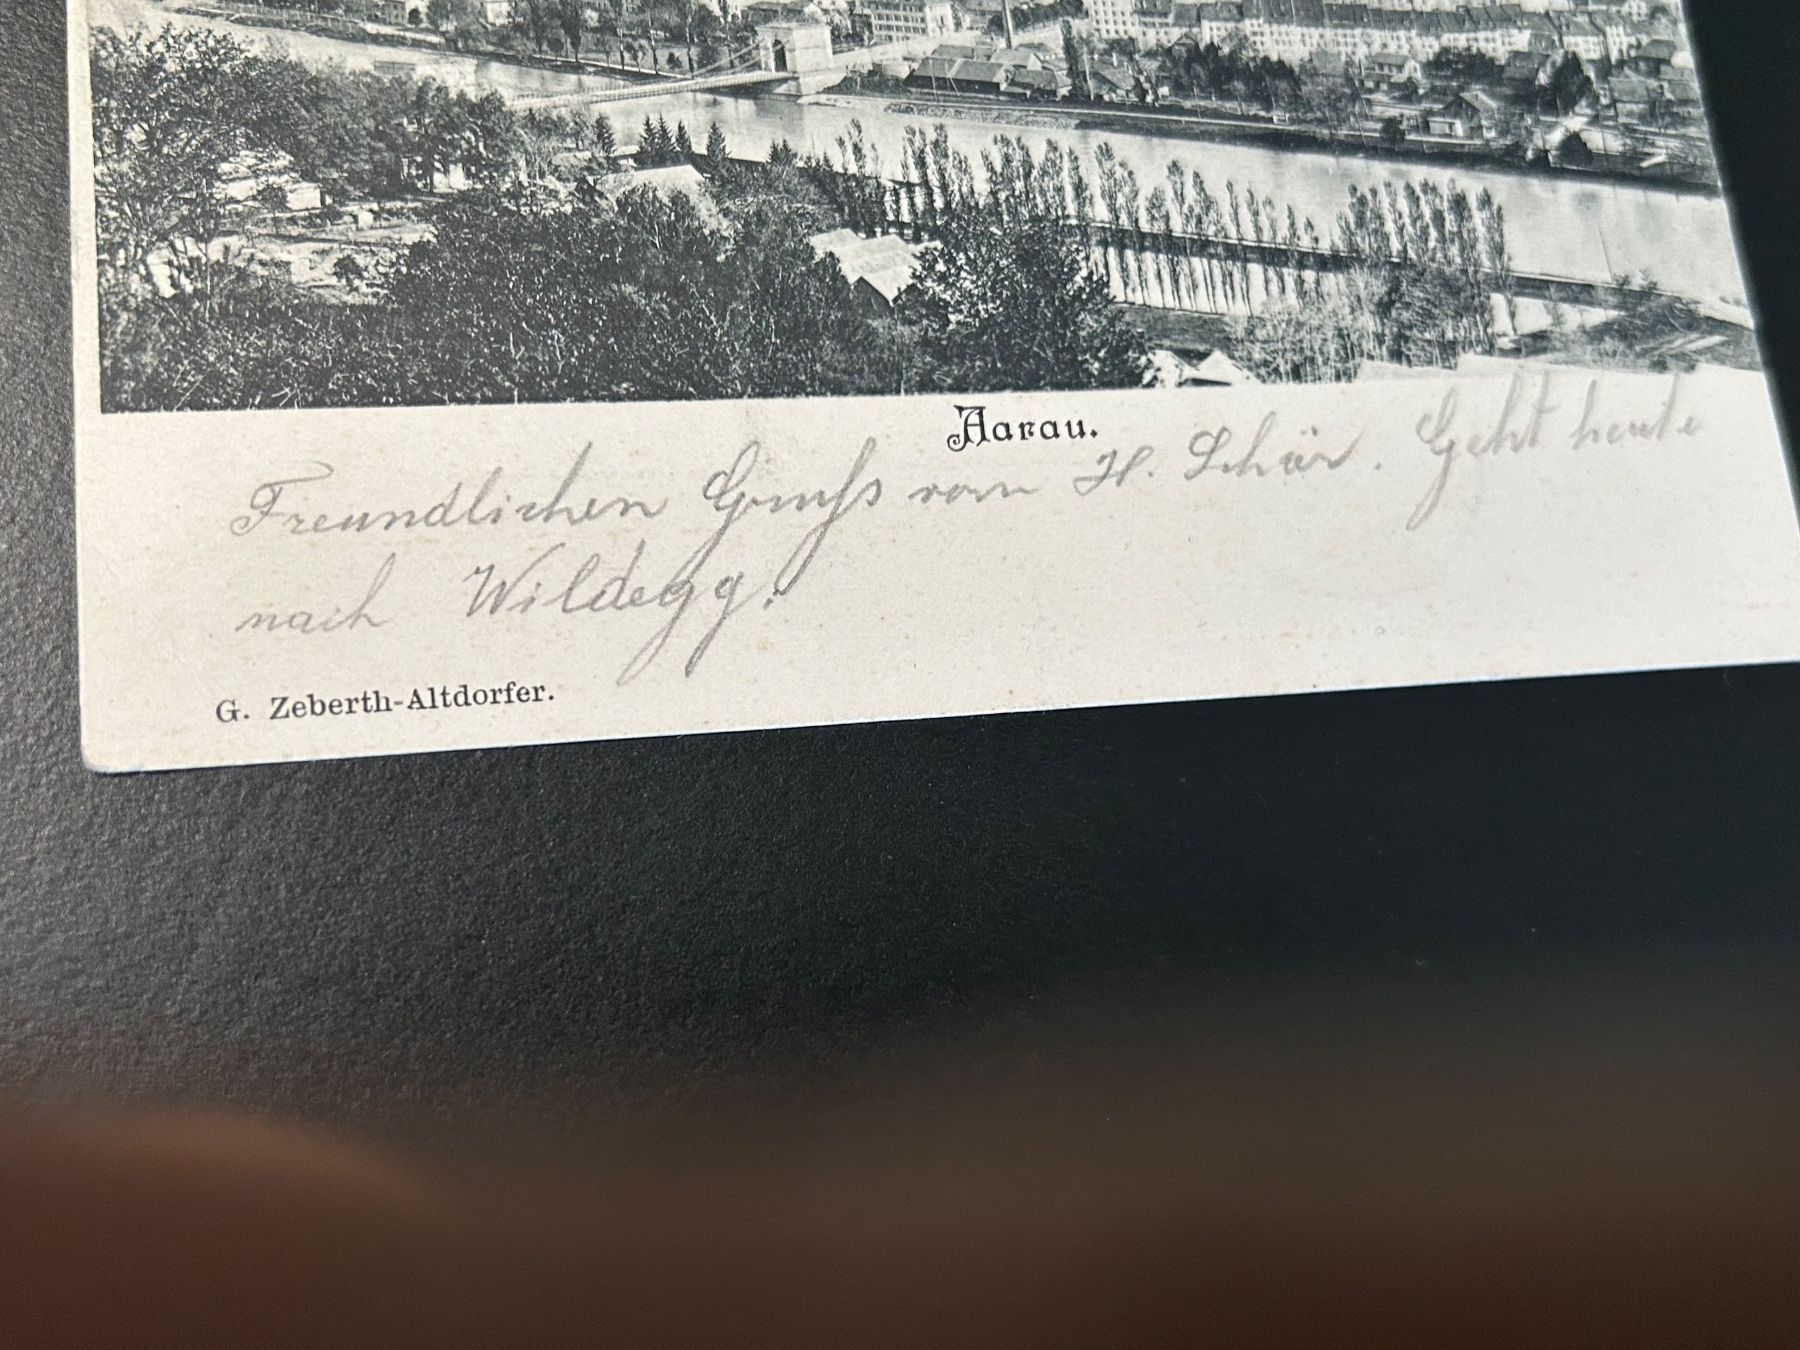 Aarau.
Freundlichen Gruß vom H. Schär. Geht heute
nach Wildegg.
G. Zeberth-Altdorfer.